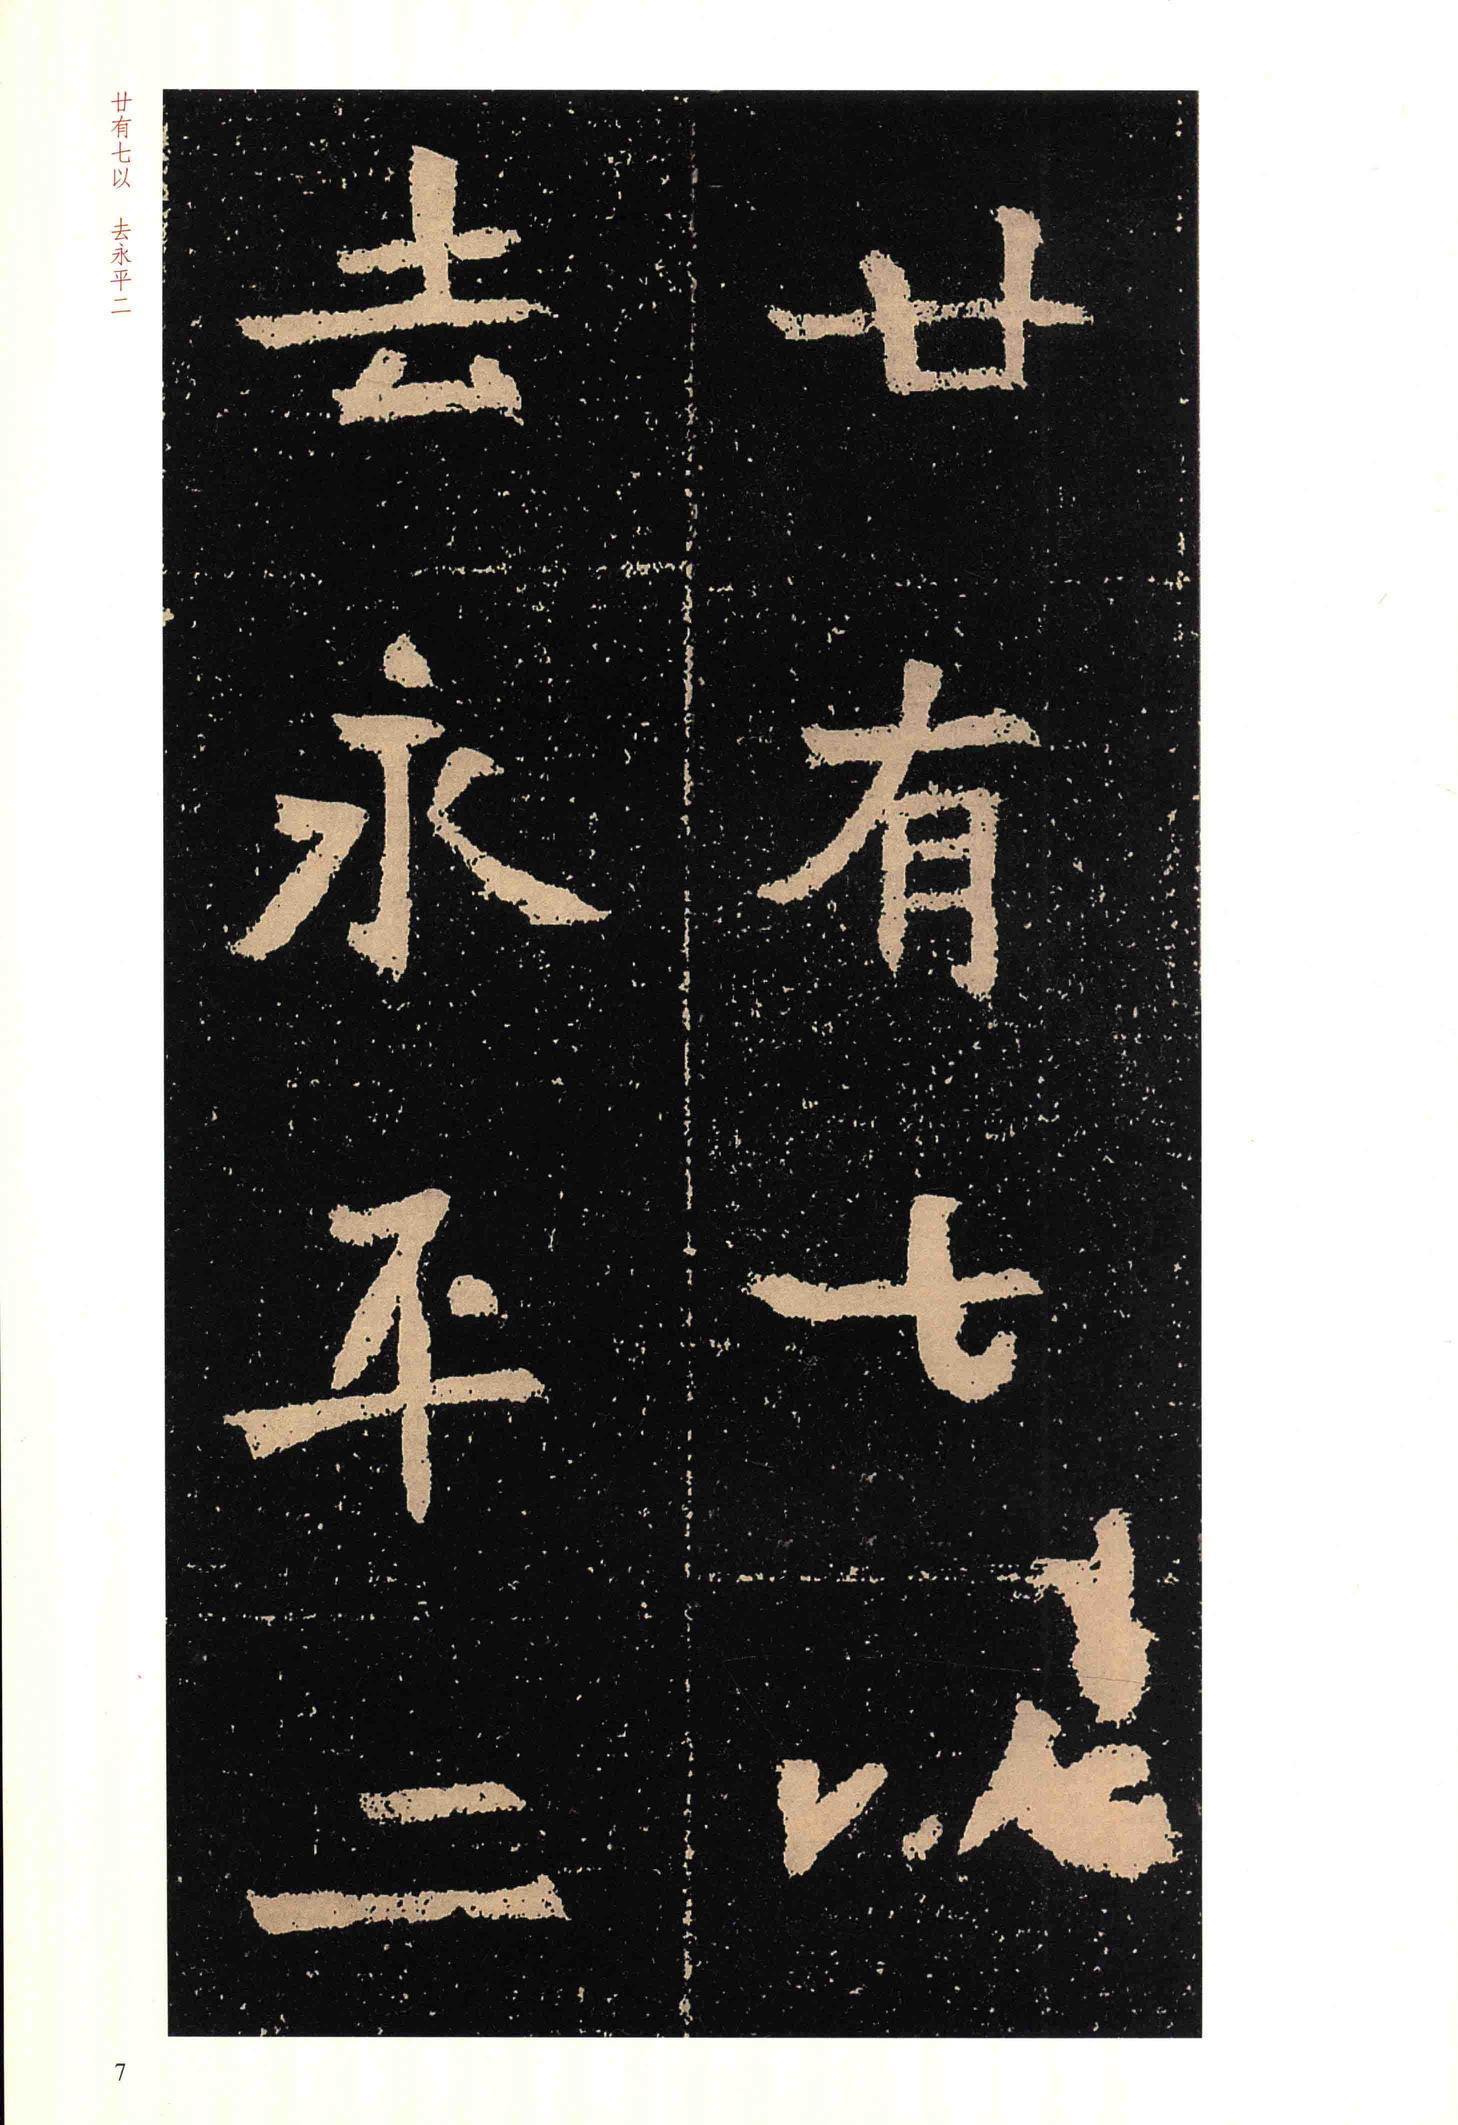 廿有七以
去永平二
廿有七以 去永平二
7